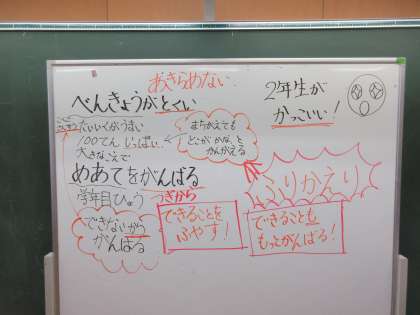 あきらめない
べんきょうがとくい
2年生が
かっこいい!
たいいくがうまい
100てん いっぱい
大きなこえで
まちがえても
どこが かな と
かんがえる
めあてをがんばる
学年目ひょう
つぎから
ふりかえり
できないから
がんばる
できることを
ふやす!
できることも
もっとがんばる!